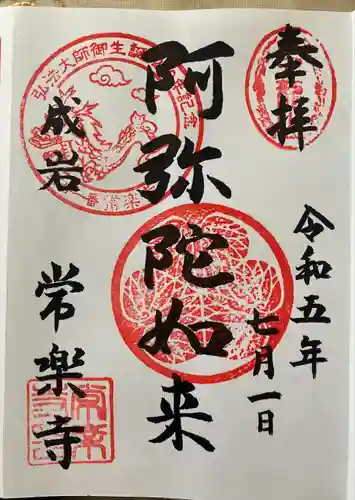 奉拝
令和五年
七月一日
阿弥陀如来
弘法大師御生誕
成岩
常楽寺